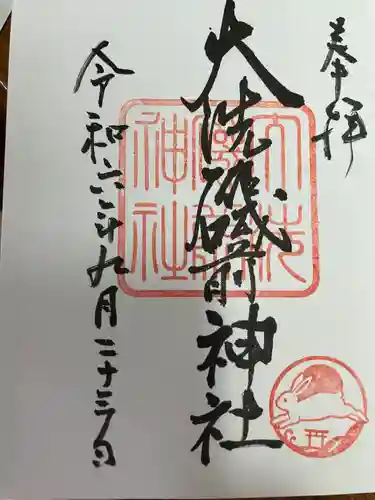 奉拝
大洗磯前神社
令和六年九月二十三日
大洗
磯前
神社